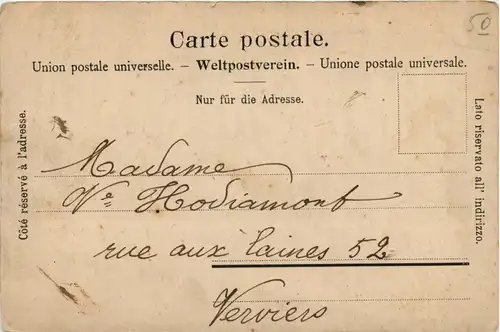 50
Carte postale.
Union postale universelle. – Weltpostverein. – Unione postale universale.
Nur für die Adresse.
Côté réservé à l'adresse.
Lato riservato all' indirizzo.
Madame
Ve Hodiamont
rue aux laines 52
Verviers